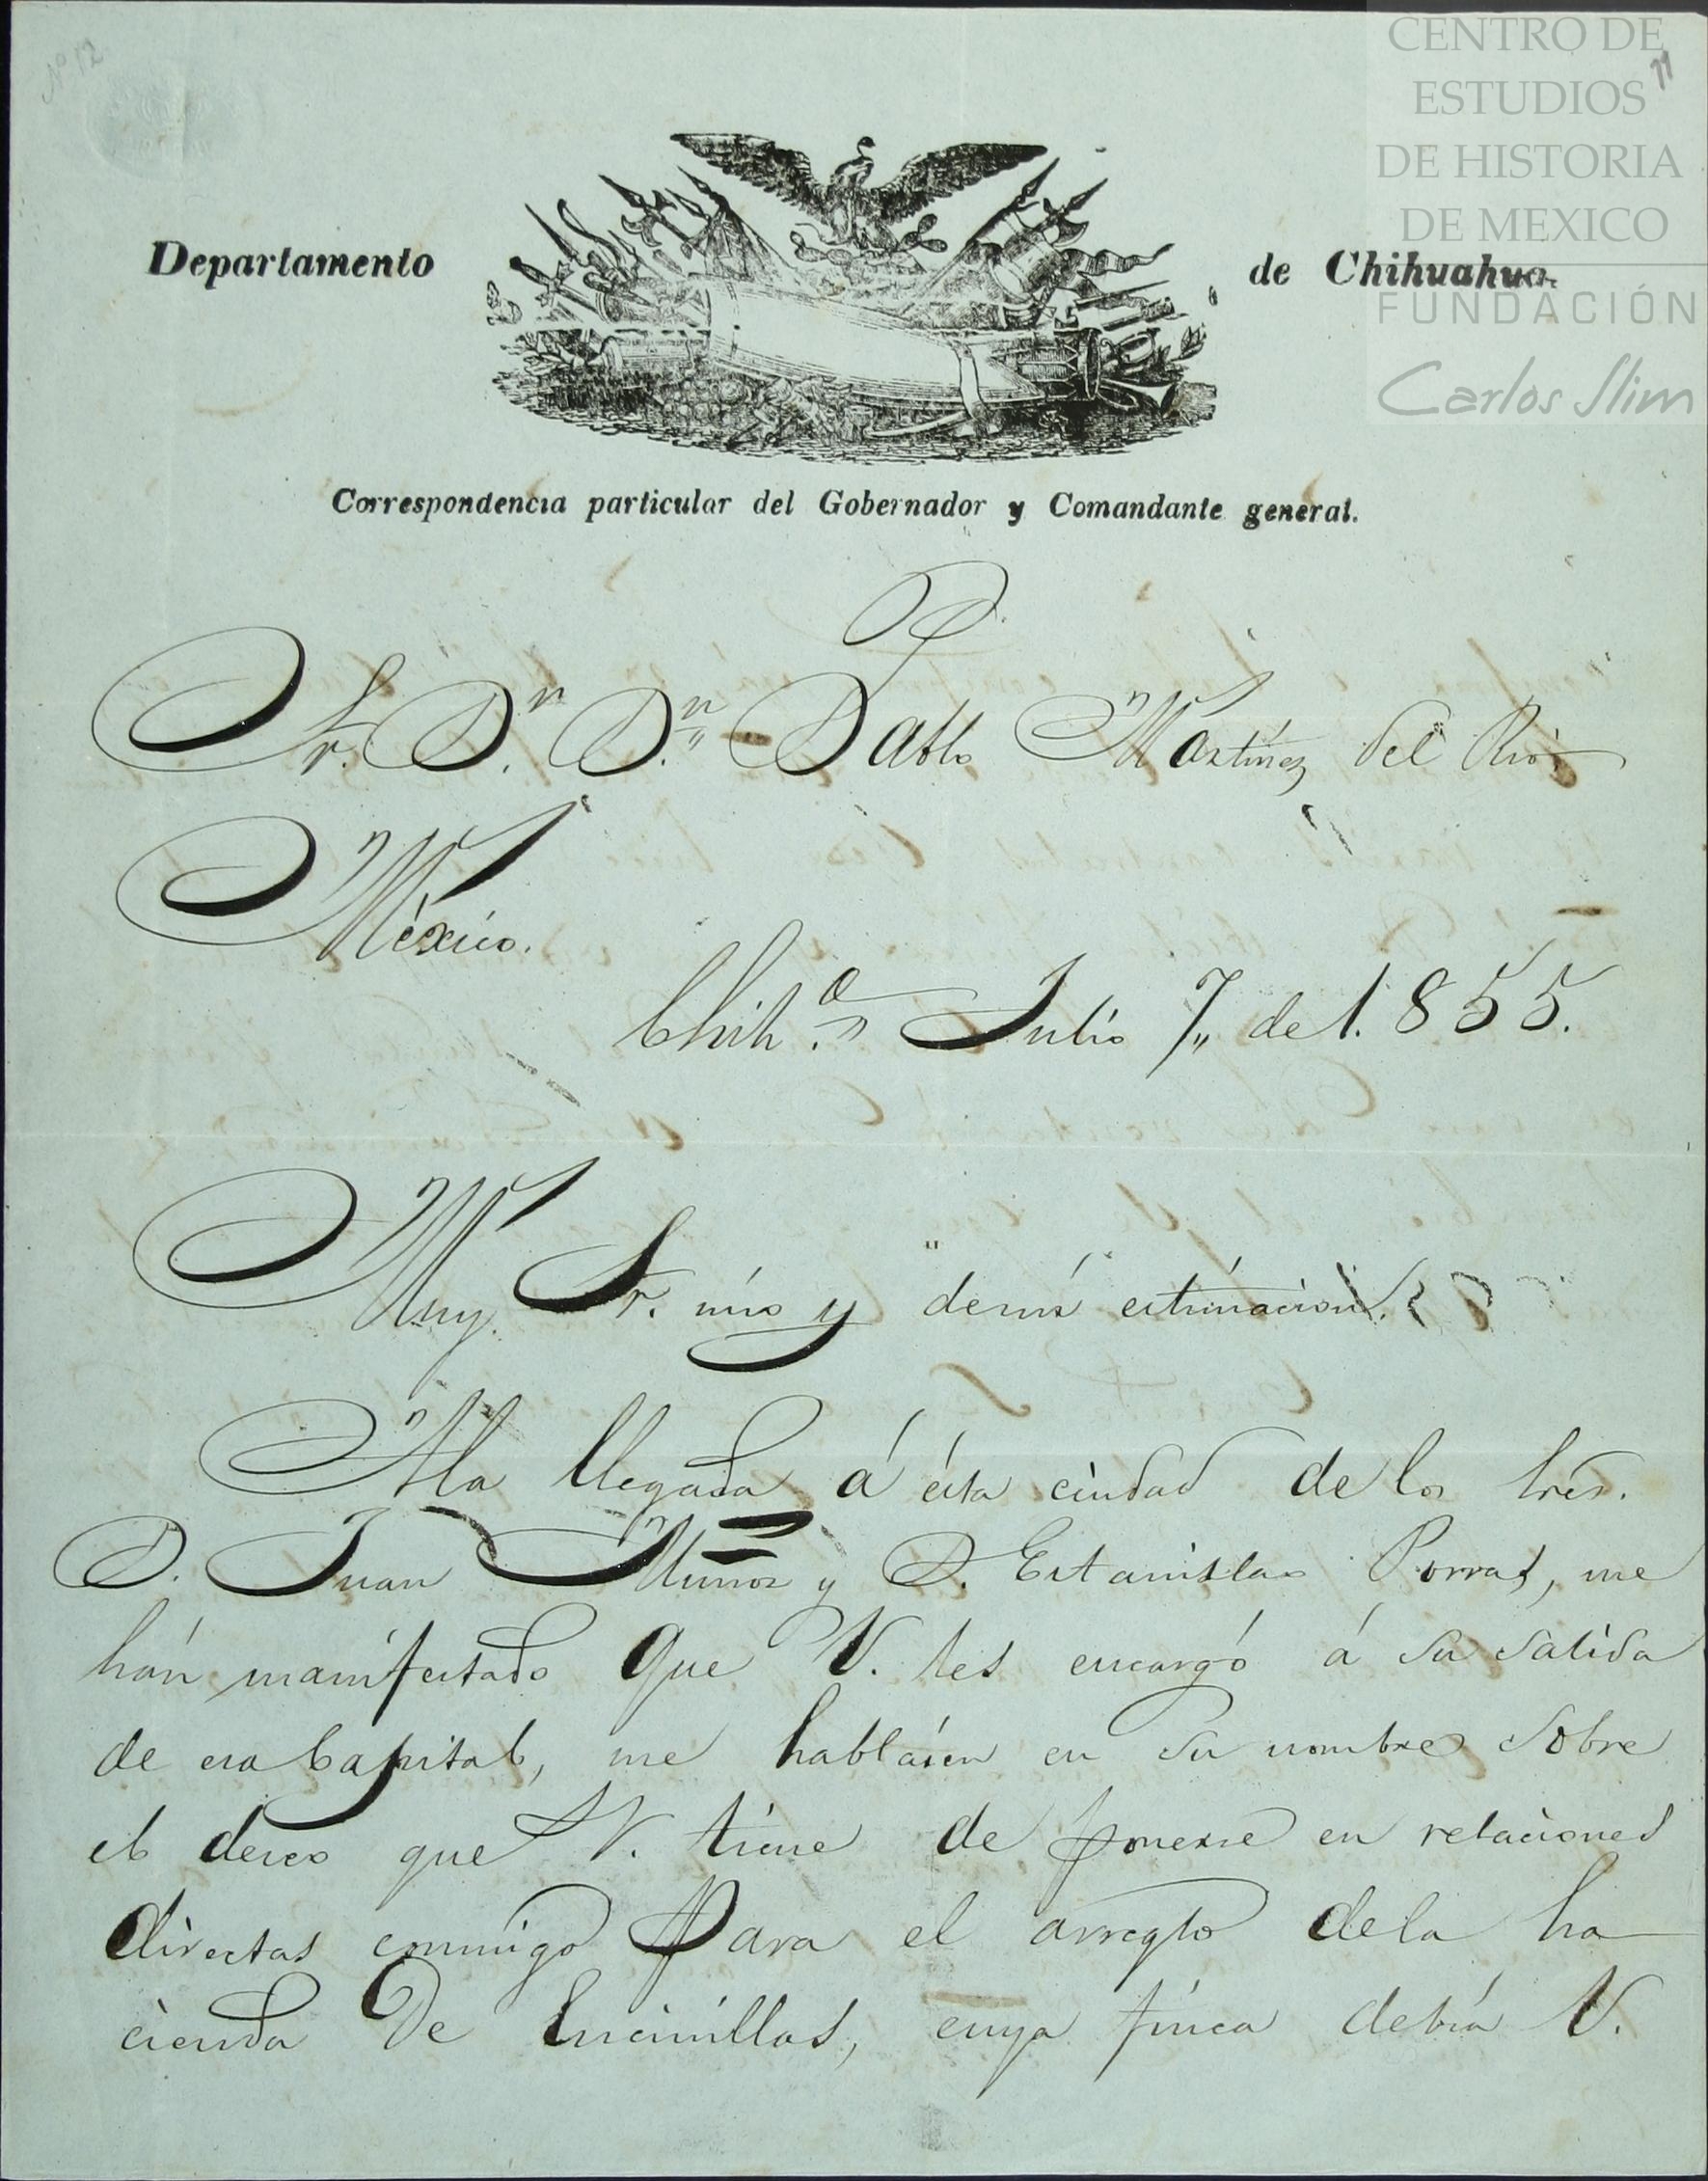 Nº 12
CENTRO DE
ESTUDIOS
DE HISTORIA
DE MEXICO
FUNDACIÓN
Carlos Slim
11
Departamento de Chihuahua.
Correspondencia particular del Gobernador y Comandante general.
Sr. D.r D.n Pablo Martínez del Río
México.
Chih.a Julio 7,, de 1.855.
Muy Sr. mío y demí estimación.
Ala llegada á ésta ciudad de los Srés.
D. Juan Muñoz y D. Estanislao Porras, me
hán manifestado que V. les encargó á su salida
de esa Capital, me hablásen en su nombre sobre
el deseo que V. tiene de ponerse en relaciones
directas conmigo para el arreglo dela ha
cienda de Encinillas, cuya finca debía V.